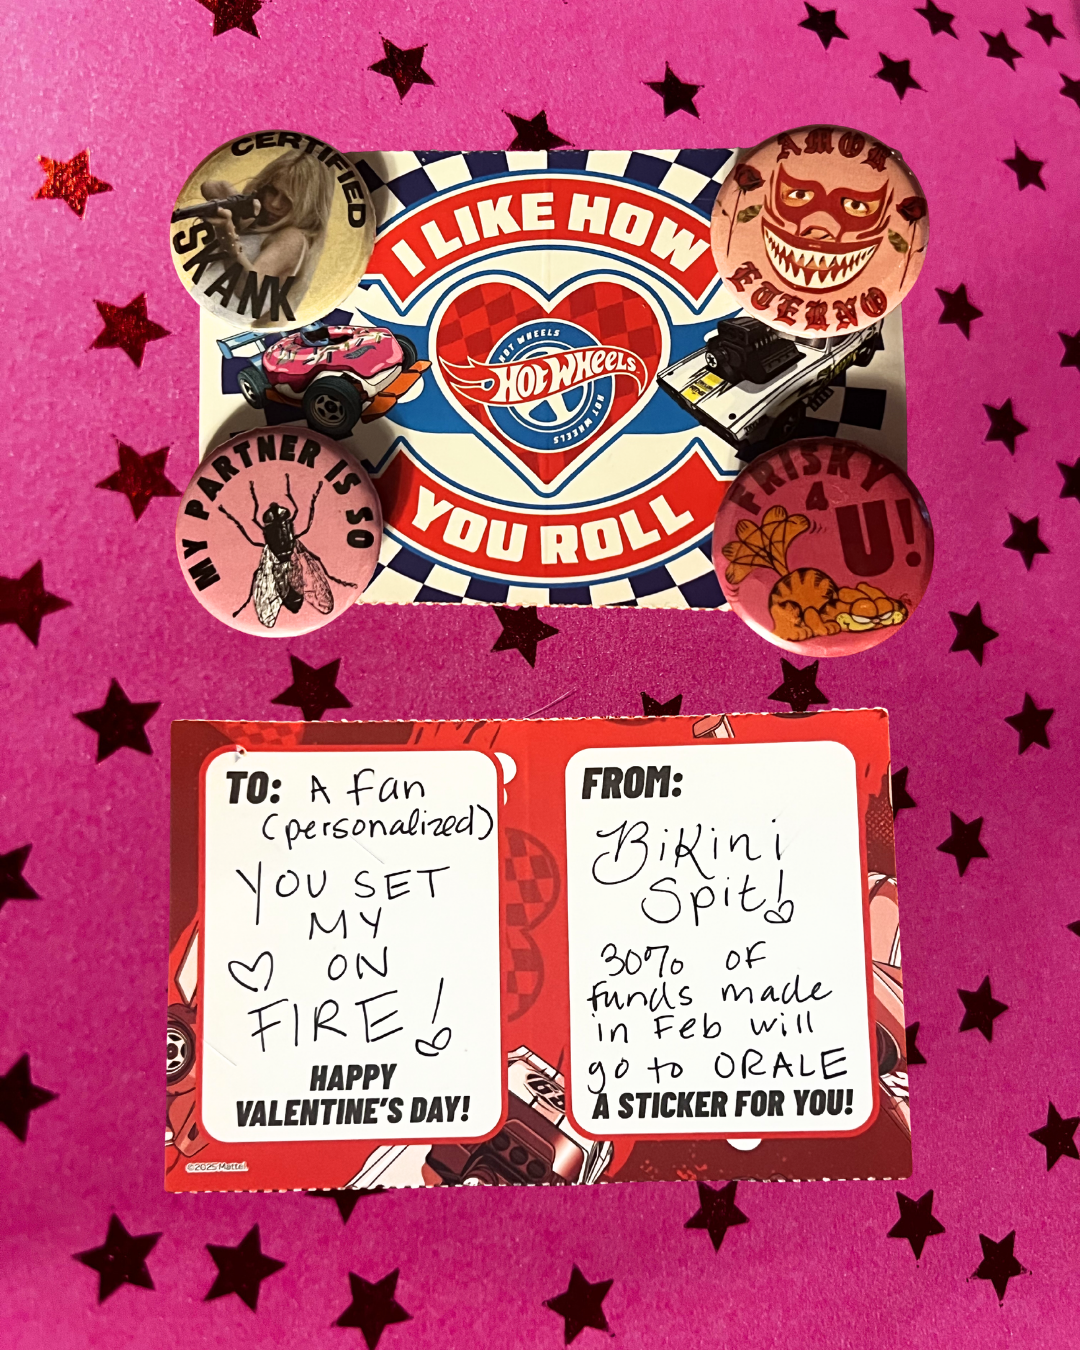 CERTIFIED
SKANK
AMOR
ETERNO
I LIKE HOW
HOT WHEELS
HOT WHEELS
HOT WHEELS
YOU ROLL
MY PARTNER IS SO
FRISKY
4
U!
TO: A fan
(personalized)
YOU SET
MY
ON
FIRE!
HAPPY
VALENTINE'S DAY!
©2025 Mattel.
FROM:
Bikini
Spit!
30% of
funds made
in Feb will
go to ORALE
A STICKER FOR YOU!